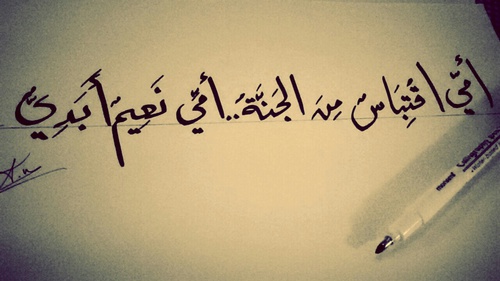 أُمِّي اقْتِبَاسٌ مِنَ الجَنَّةِ.. أُمِّي نَعِيمٌ أَبَدِيٌّ